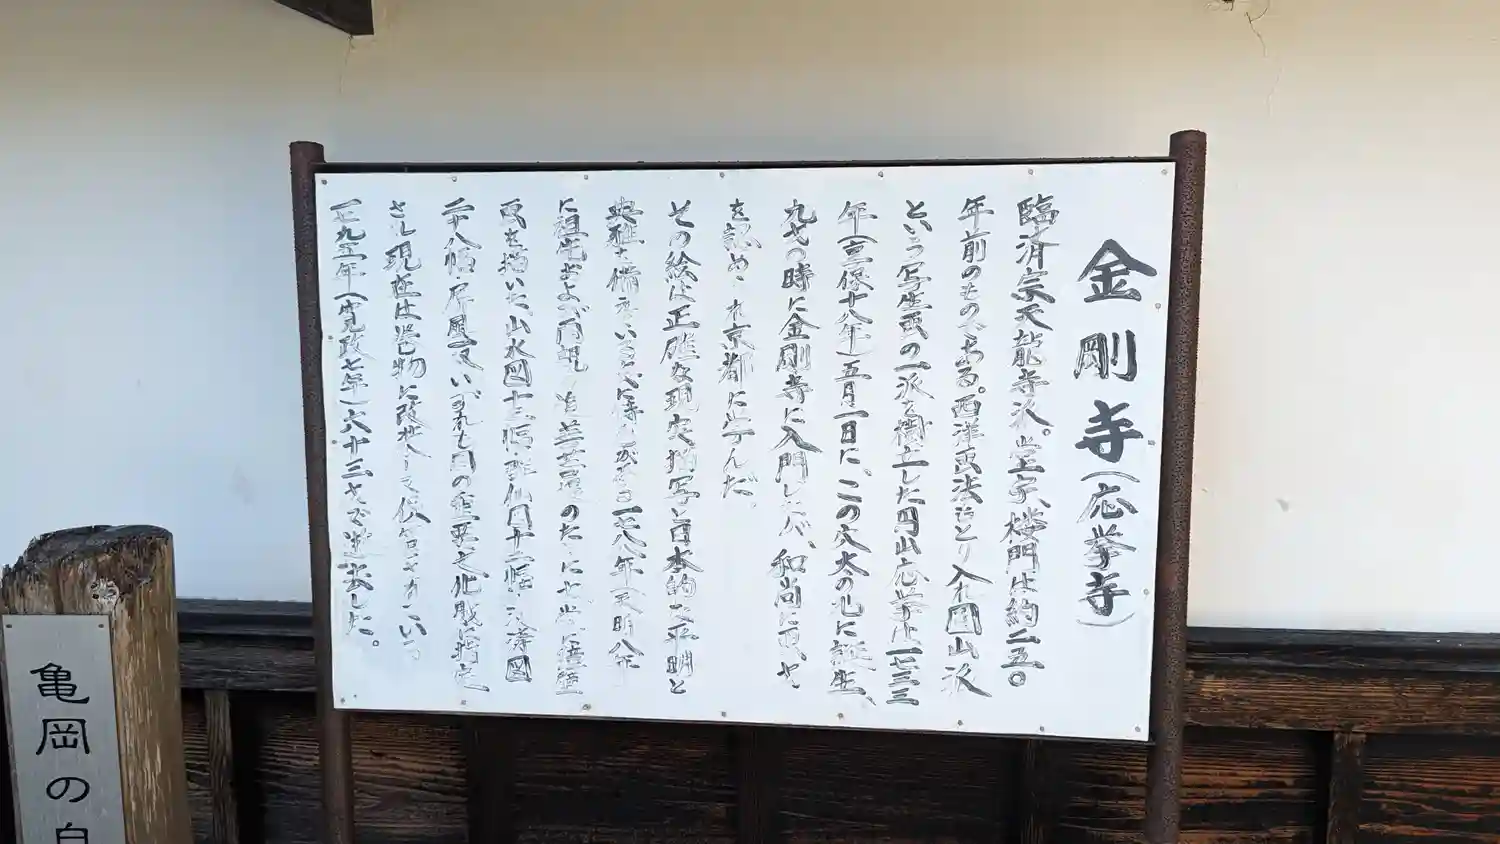 金剛寺(応挙寺)
臨済宗天龍寺派。堂宇、楼門は約二五〇
年前のものである。西洋画法もとり入れ円山派
という写生画の一派を樹立した円山応挙は一七三三
年(享保十八年)五月一日に、この穴太の地に誕生、
九才の時に金剛寺に入門したが、和尚に画才
を認められ京都に学んだ。
その絵は正確な現実描写と日本的な平明と
典雅を備えている 一七八八年(天明八年
に祖先および両親の追善菩提のために 障壁
画を描いた。山水図十三幅 群仙図十二幅 波濤図
二十八幅 屏風 いづれも国の重要文化財に指定
され現在は巻物に改装して保管されている
一七九五年(寛政七年)六十三才で逝去した。
亀岡の自